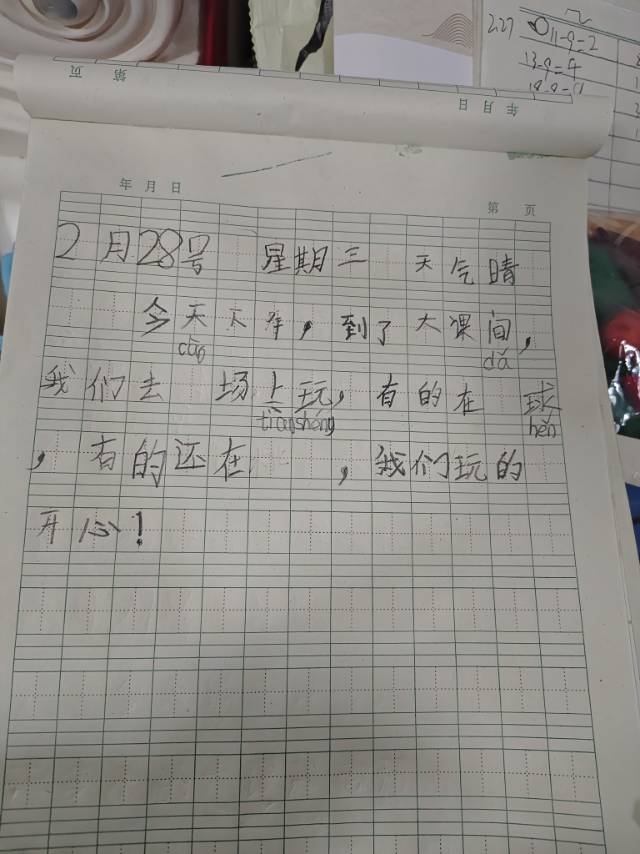 2.27 11-9=2
13-9=4
第 页
年 月 日
年 月 日
第 页
2月28号 星期三 天气晴
今天下午，到了大课间，
cāo dǎ
我们去 场上玩，有的在 球
tiàoshéng hěn
，有的还在 ，我们玩的
开心！